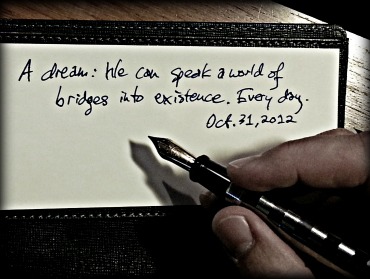 A dream: We can speak a world of
bridges into existence. Every day.
Oct. 31, 2012